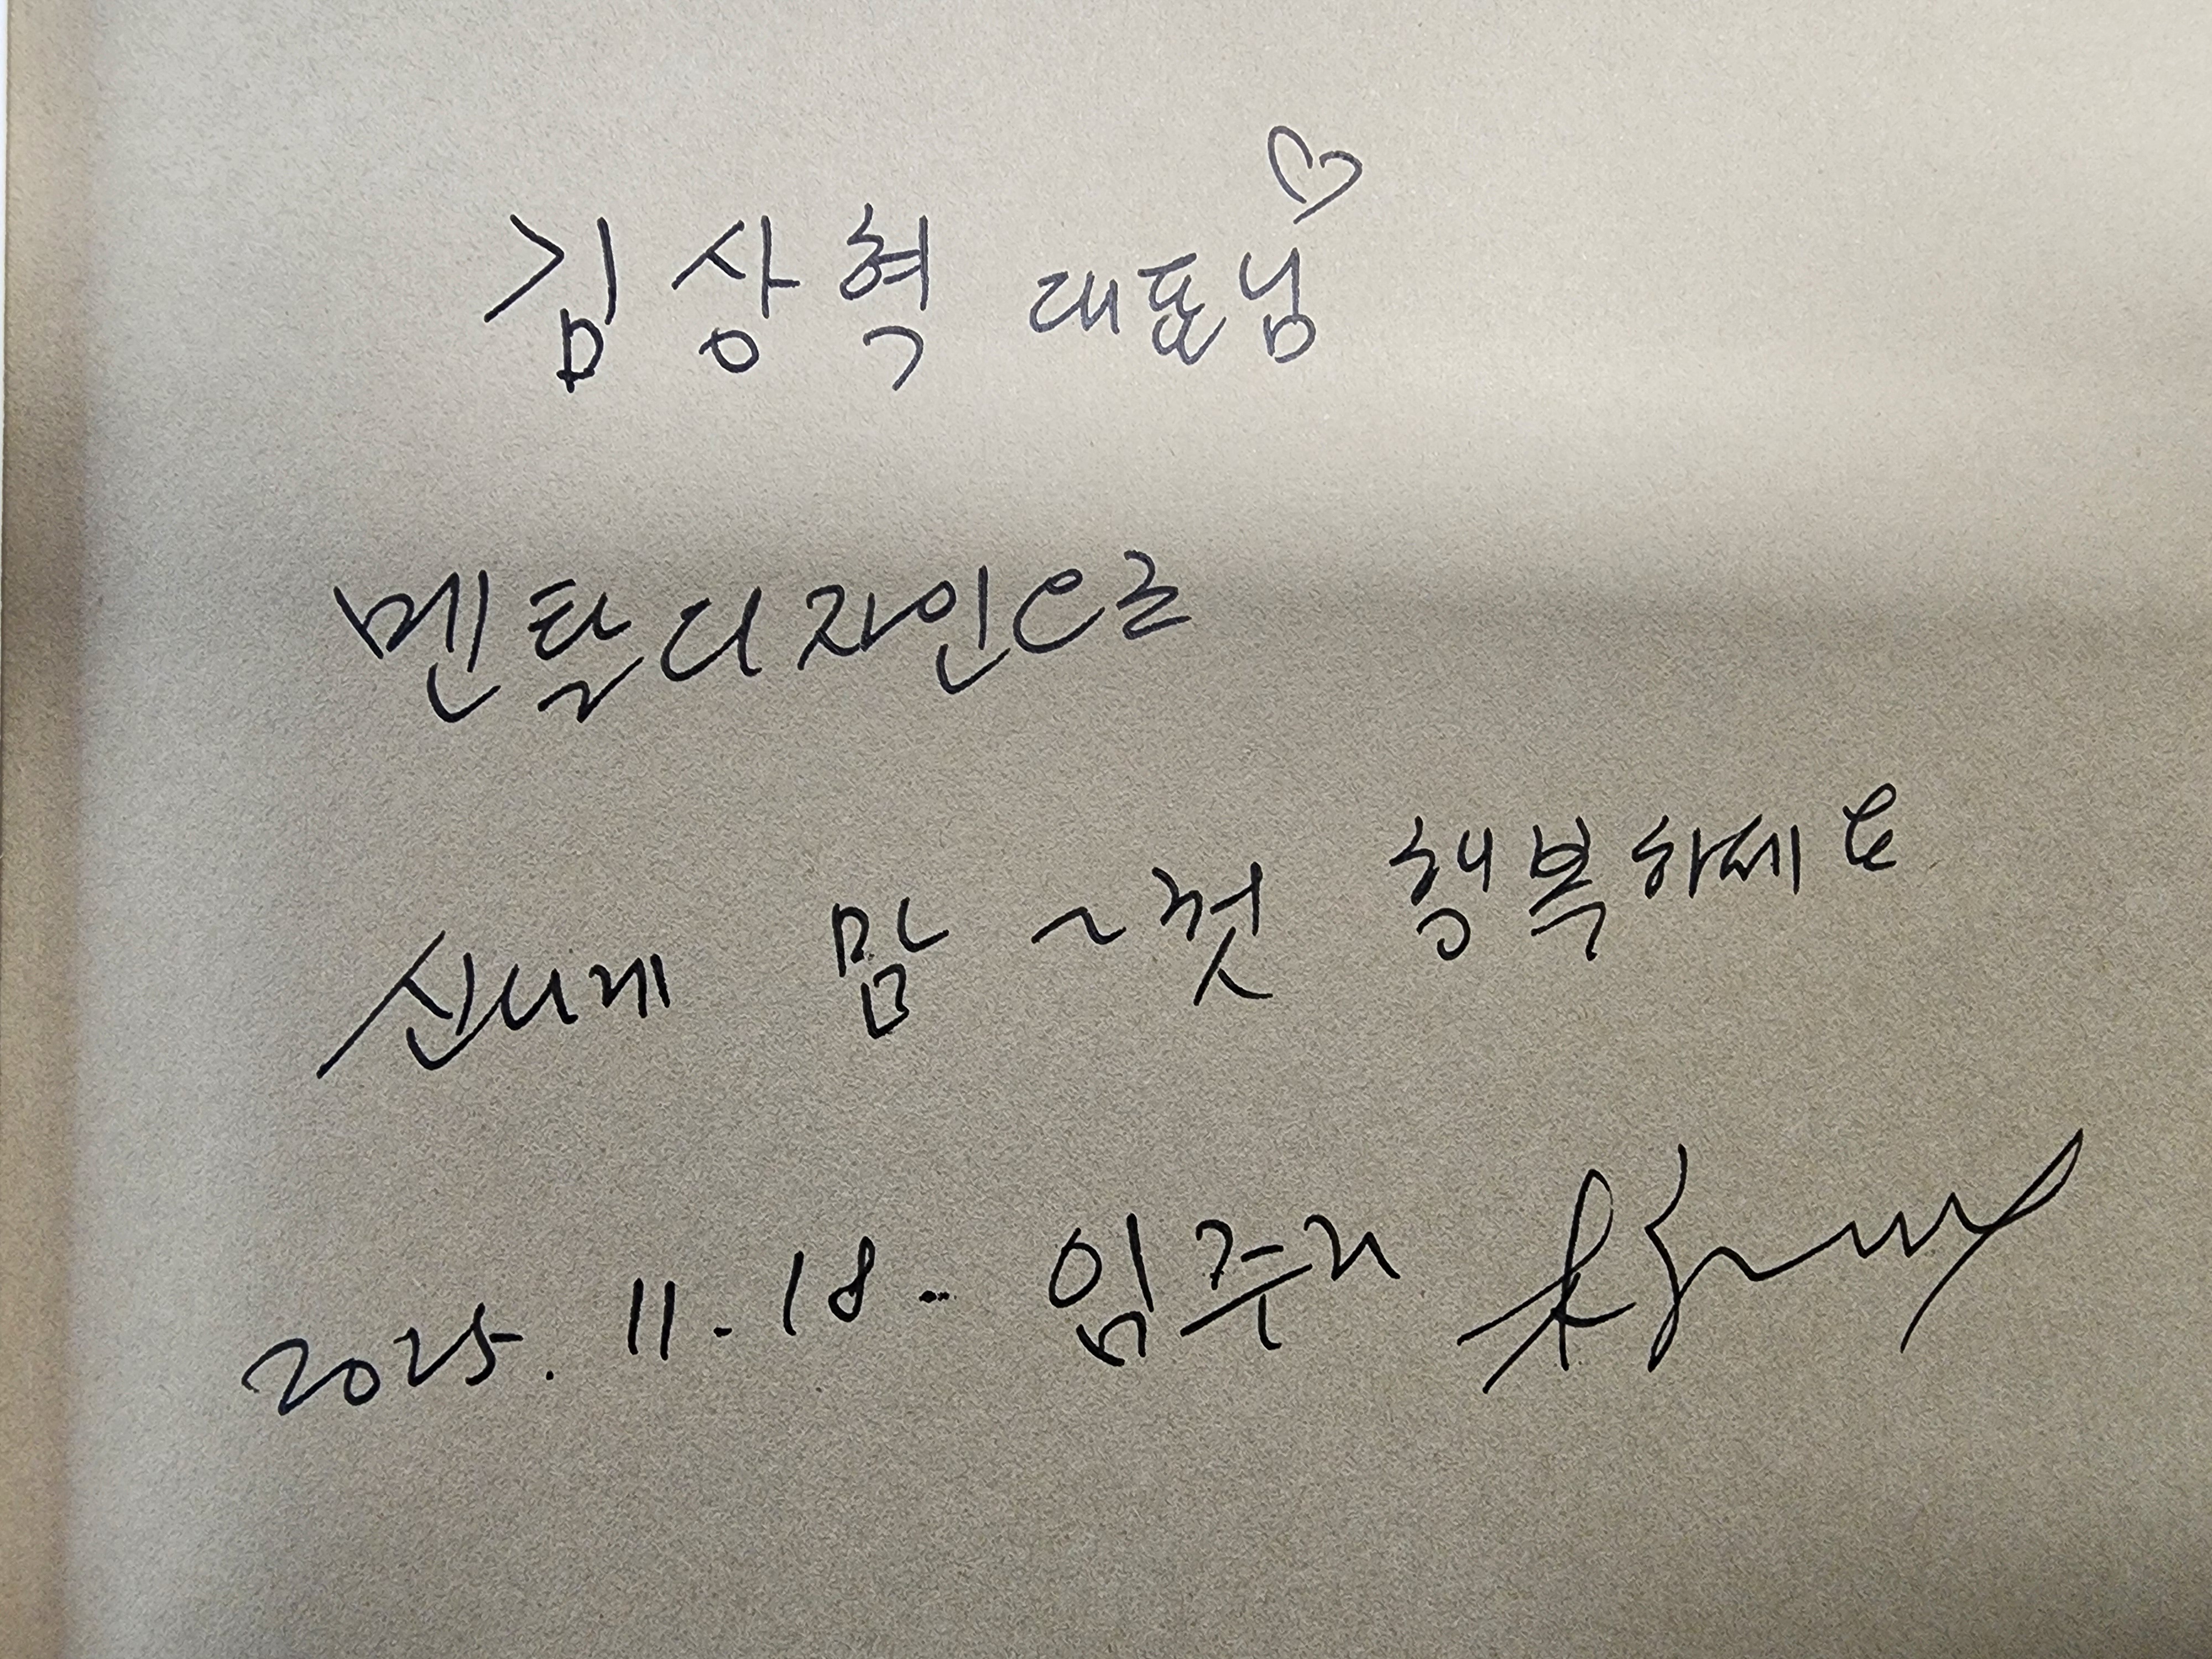 김상혁 대표님♡
멘탈디자인으로
신나게 맘~껏 행복하세요
2025. 11. 18. 임주리